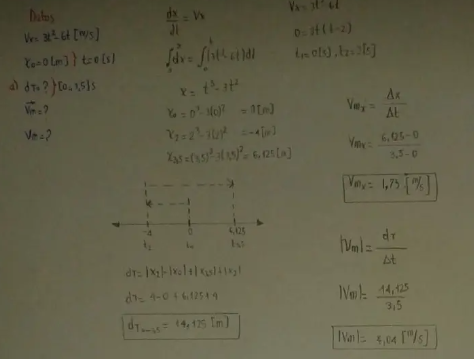 Datos
Vx = 3t²-6t [m/s]
x₀=0[m] } t=0[s]
a) dT=? } [0-3,5]s
V⃗m=?
Vm=?
dx/dt = Vx
∫dx = ∫(3t²-6t)dt
x = t³-3t²
x₀ = 0³-3(0)² = 0[m]
x₂ = 2³-3(2)² = -4[m]
x₃,₅ = (3,5)³-3(3,5)² = 6,125[m]
-4 0 6,125
t₂ t₀ t₃,₅
dT = |x₂|-|x₀|+|x₃,₅|+|x₂|
dT = 4-0+6,125+4
dT₀₋₃,₅ = 14,125 [m]
Vx = 3t²-6t
0 = 3t(t-2)
t₁=0[s], t₂=2[s]
Vmx = Δx/Δt
Vmx = 6,125-0/3,5-0
Vmx = 1,75 [m/s]
|Vm| = dT/Δt
|Vm| = 14,125/3,5
|Vm| = 4,04 [m/s]